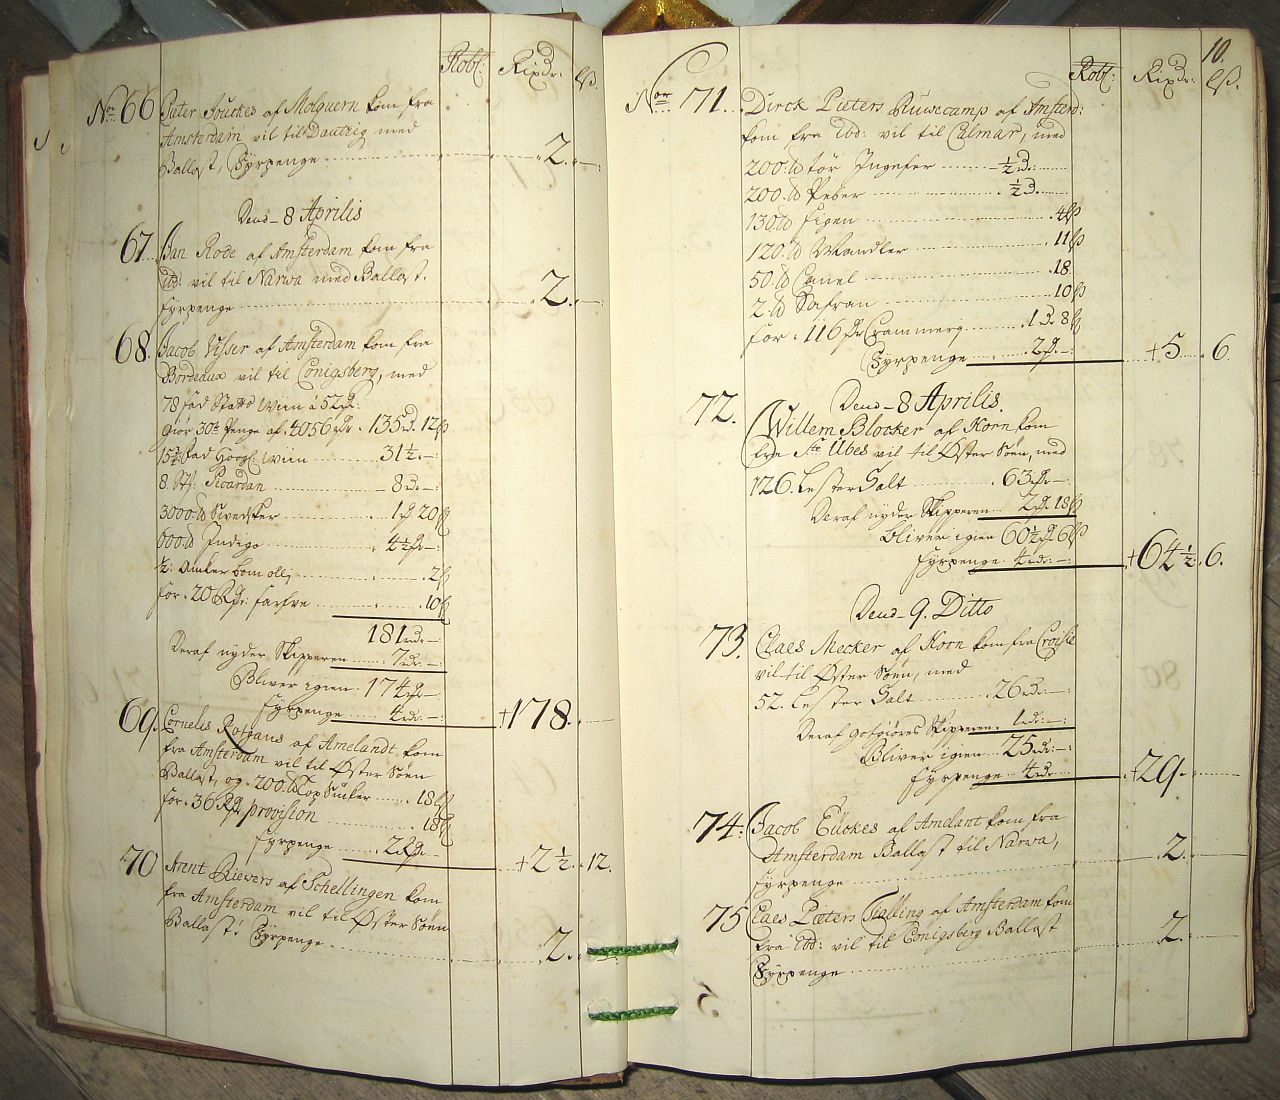 Robl: Rixdr: lß
No 66 Pieter Jouckes af Molquern kom fra
Amsterdam vil til Dantzig med
Ballast, Fyrpenge 2.
Dend 8 Aprilis
67. Jan Rode af Amsterdam kom fra
ibd: vil til Narwa med Ballast.
Fyrpenge 2.
68. Jacob Visser af Amsterdam kom fra
Bordeaux vil til Conigsberg, med
78 fad Wiin á 52
Giør 30te Penge af 4056 135 12ß
15½ fad Hoogl: Wiin 31½
8 Picardan 8
3000 lb Svedsker 1 20ß
600 lb Indigo 4½
½ Amker bomolj 2ß
for 20 farfve 10ß
181 rd
Deraf nyder Skipperen 7 rd
Bliver igien 174
fyrpenge 4 rd +178.
69. Cornelis af Amelandt kom
fra Amsterdam vil til Øster Søen
Ballast, og 200 lb Top Sucker 18ß
for 36 Rd provision 18ß
fyrpenge 2 +2½ 12.
70 Arent Riewers af Schellingen kom
fra Amsterdam vil til Øster Søen
Ballast: Fyrpenge 2.
10.
Robl: Rixdr: lß.
Nor 71. Dirck Pieters Ruwecamp af Amsterd:
kom fra ibd: vil til Calmar, med
200 lb tör Ingefer ½ d
200 lb Peber ½ d
130 lb figen 4ß
120 lb Mandler 11ß
50 lb Canel 18
2 lb Safran 10ß
for 116 Crammerg 1 d 8ß
Fyrpenge 2 +5 6.
Dend 8 Aprilis.
72. Willem Blocker af Horn kom
fra Ste Ubes vil til Øster Søen, med
126 Lester Salt 63
Deraf nyder Skipperen 2 18ß
bliver igien 60½ 6ß
fyrpenge 4 rd +64½ 6.
Dend 9. Ditto
73. Claes Mecker af Horn kom fra Croisic
vil til Øster Søen, med
52. Lester Salt 26 rd
Deraf godgiøres Skipperen 1 rd
Bliver igien 25 rd
fyrpenge 4 rd +29.
74. Jacob Euckes af Amelant kom fra
Amsterdam Ballast til Narwa,
fyrpenge 2.
75 Claes Pieters Stalling af Amsterdam kom
fra ibd: vil til Conigsberg Ballast
Fyrpenge 2.